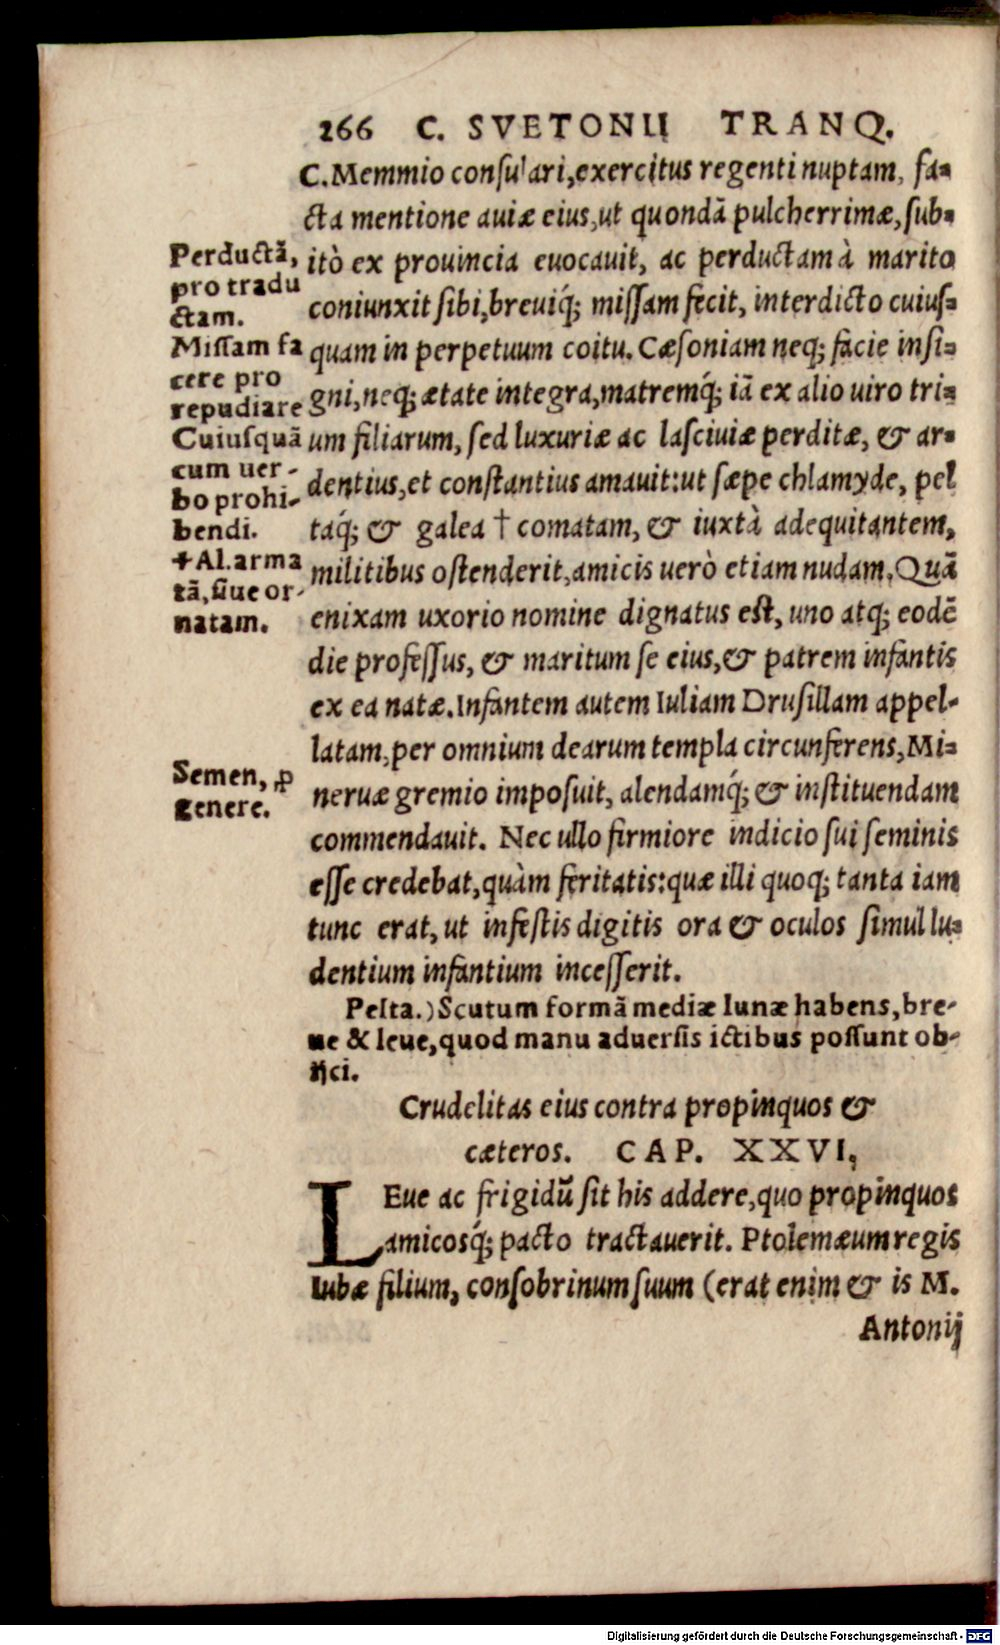 266 C. SVETONII TRANQ.
C. Memmio consulari, exercitus regenti nuptam, fa-
cta mentione auiæ eius, ut quondã pulcherrimæ, sub-
itò ex prouincia euocauit, ac perductam à marito
coniunxit sibi, breuiq́; missam fecit, interdicto cuius-
quam in perpetuum coitu. Cæsoniam neq; facie insi-
gni, neq; ætate integra, matremq́; iã ex alio uiro tri-
um filiarum, sed luxuriæ ac lasciuiæ perditæ, & ar-
dentius, et constantius amauit: ut sæpe chlamyde, pel
taq́; & galea † comatam, & iuxtà adequitantem,
militibus ostenderit, amicis uerò etiam nudam. Quã
enixam uxorio nomine dignatus est, uno atq; eodẽ
die professus, & maritum se eius, & patrem infantis
ex ea natæ. Infantem autem Iuliam Drusillam appel-
latam, per omnium dearum templa circunferens, Mi-
neruæ gremio imposuit, alendamq́; & instituendam
commendauit. Nec ullo firmiore indicio sui seminis
esse credebat, quàm feritatis: quæ illi quoq; tanta iam
tunc erat, ut infestis digitis ora & oculos simul lu-
dentium infantium incesserit.
Perductã,
pro tradu
ctam.
Missam fa
cere pro
repudiare
Cuiusquã
cum uer-
bo prohi-
bendi.
+ Al. arma
tã, siue or-
natam.
Semen, ꝓ
genere.
Pelta.) Scutum formã mediæ lunæ habens, bre-
ue & leue, quod manu aduersis ictibus possunt ob-
ijci.
Crudelitas eius contra propinquos &
cæteros. CAP. XXVI.
LEue ac frigidũ sit his addere, quo propinquos
amicosq́; pacto tractauerit. Ptolemæum regis
Iubæ filium, consobrinum suum (erat enim & is M.
Antonij
Digitalisierung gefördert durch die Deutsche Forschungsgemeinschaft - DFG